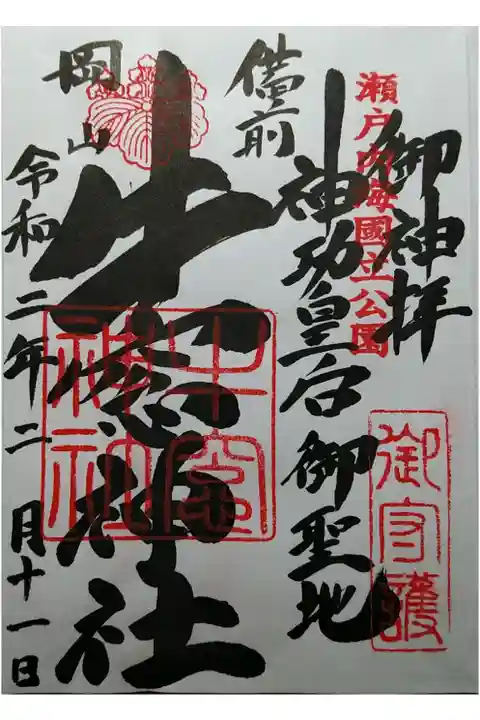 瀬戸内海國立公園
御神拝
御守護
備前
神功皇后御聖地
岡山
牛窓神社
牛窓神社
令和二年二月十一日